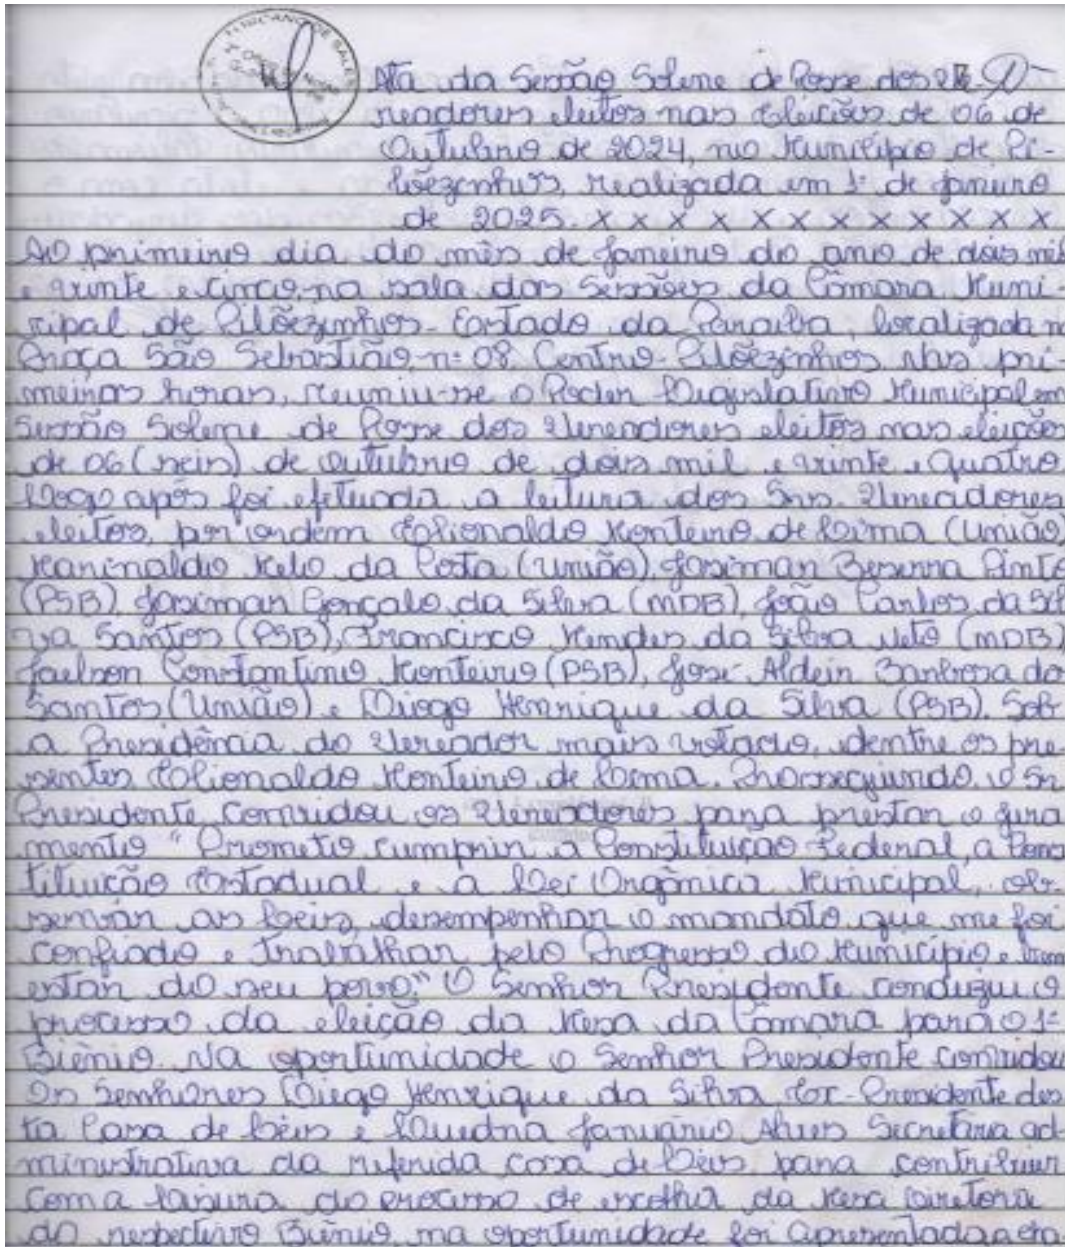 Ata da Sessão Solene de Posse dos Ve-
readores eleitos nas Eleições de 06 de
Outubro de 2024, no Município de Pi-
lõezinhos, realizada em 1º de Janeiro
de 2025. x x x x x x x x x x x x
Ao primeiro dia do mês de Janeiro do ano de dois mil
e vinte e cinco, na sala das Sessões da Câmara Muni-
cipal de Pilõezinhos - Estado da Paraíba, localizada n
Praça São Sebastião, nº 08. Centro - Pilõezinhos Nas pri-
meiras horas, reuniu-se o Poder Legislativo Municipal em
Sessão Solene de Posse dos Vereadores eleitos nas eleições
de 06 (seis) de Outubro de dois mil e vinte e quatro
Logo após foi efetuada a leitura dos Srs. Vereadores
eleitos, por ordem Elionaldo Monteiro de Lima (União)
Marinaldo Melo da Costa (União), Josimar Bezerra Pinto
(PSB), Josimar Gonçalo da Silva (MDB), João Carlos da Sil
va Santos (PSB), Francisco Mendes da Silva Neto (MDB)
Joelson Constantino Monteiro (PSB), José Aldeir Barbosa do
Santos (União) e Diogo Henrique da Silva (PSB). Sob
a Presidência do Vereador mais votado, dentre os pre
sentes Elionaldo Monteiro de Lima. Prosseguindo, o Sr
Presidente convidou os Vereadores para prestar o jura
mento " Prometo cumprir a Constituição Federal, a Cons
tituição Estadual e a Lei Orgânica Municipal, ob-
servar as Leis, desempenhar o mandato que me foi
confiado e trabalhar pelo Progresso do Município e bem
estar do seu povo." O Senhor Presidente conduziu o
processo da eleição da Mesa da Câmara para o 1º
Biênio. Na oportunidade o Senhor Presidente convidou
Os Senhores Diego Henrique da Silva Ex-Presidente des
ta Casa de Leis e Luedna Januário Alves Secretária ad-
ministrativa da referida casa de Leis para contribuir
com a lisura do processo de escolha da Mesa Diretora
do respectivo Biênio, na oportunidade foi apresentada a